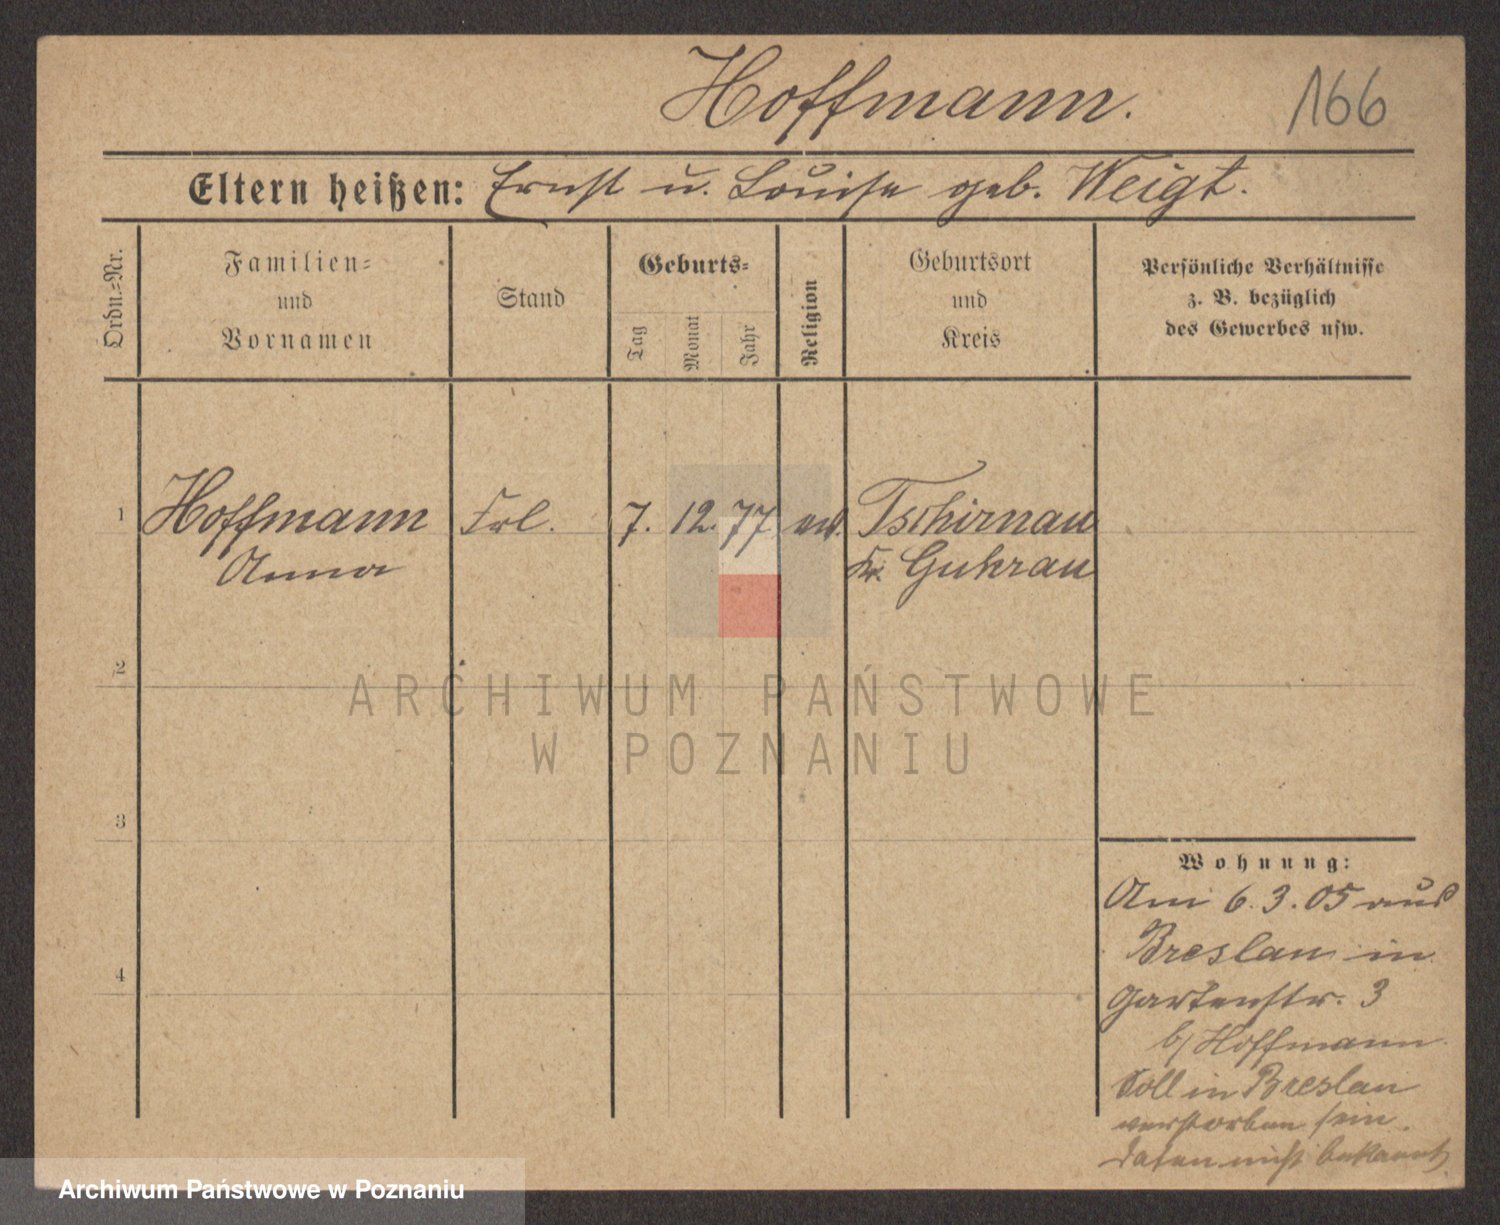 Hoffmann.
166
Eltern heißen: Ernst u. Louise geb. Weigt.
Ordn.=Nr.
Familien=
und
Vornamen
Stand
Geburts=
Tag
Monat
Jahr
Religion
Geburtsort
und
Kreis
Persönliche Verhältnisse
z. B. bezüglich
des Gewerbes usw.
1 Hoffmann Frl. 7. 12. 77 ev. Tschirnau
Anna Kr. Guhrau
2
3
4
Wohnung:
Am 6.3.05 aus
Breslau in
Gartenstr. 3
b/ Hoffmann
Soll in Breslau
verstorben sein.
Daten nicht bekannt
ARCHIWUM PAŃSTWOWE
W POZNANIU
Archiwum Państwowe w Poznaniu